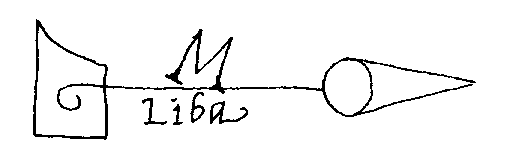 M
Liba